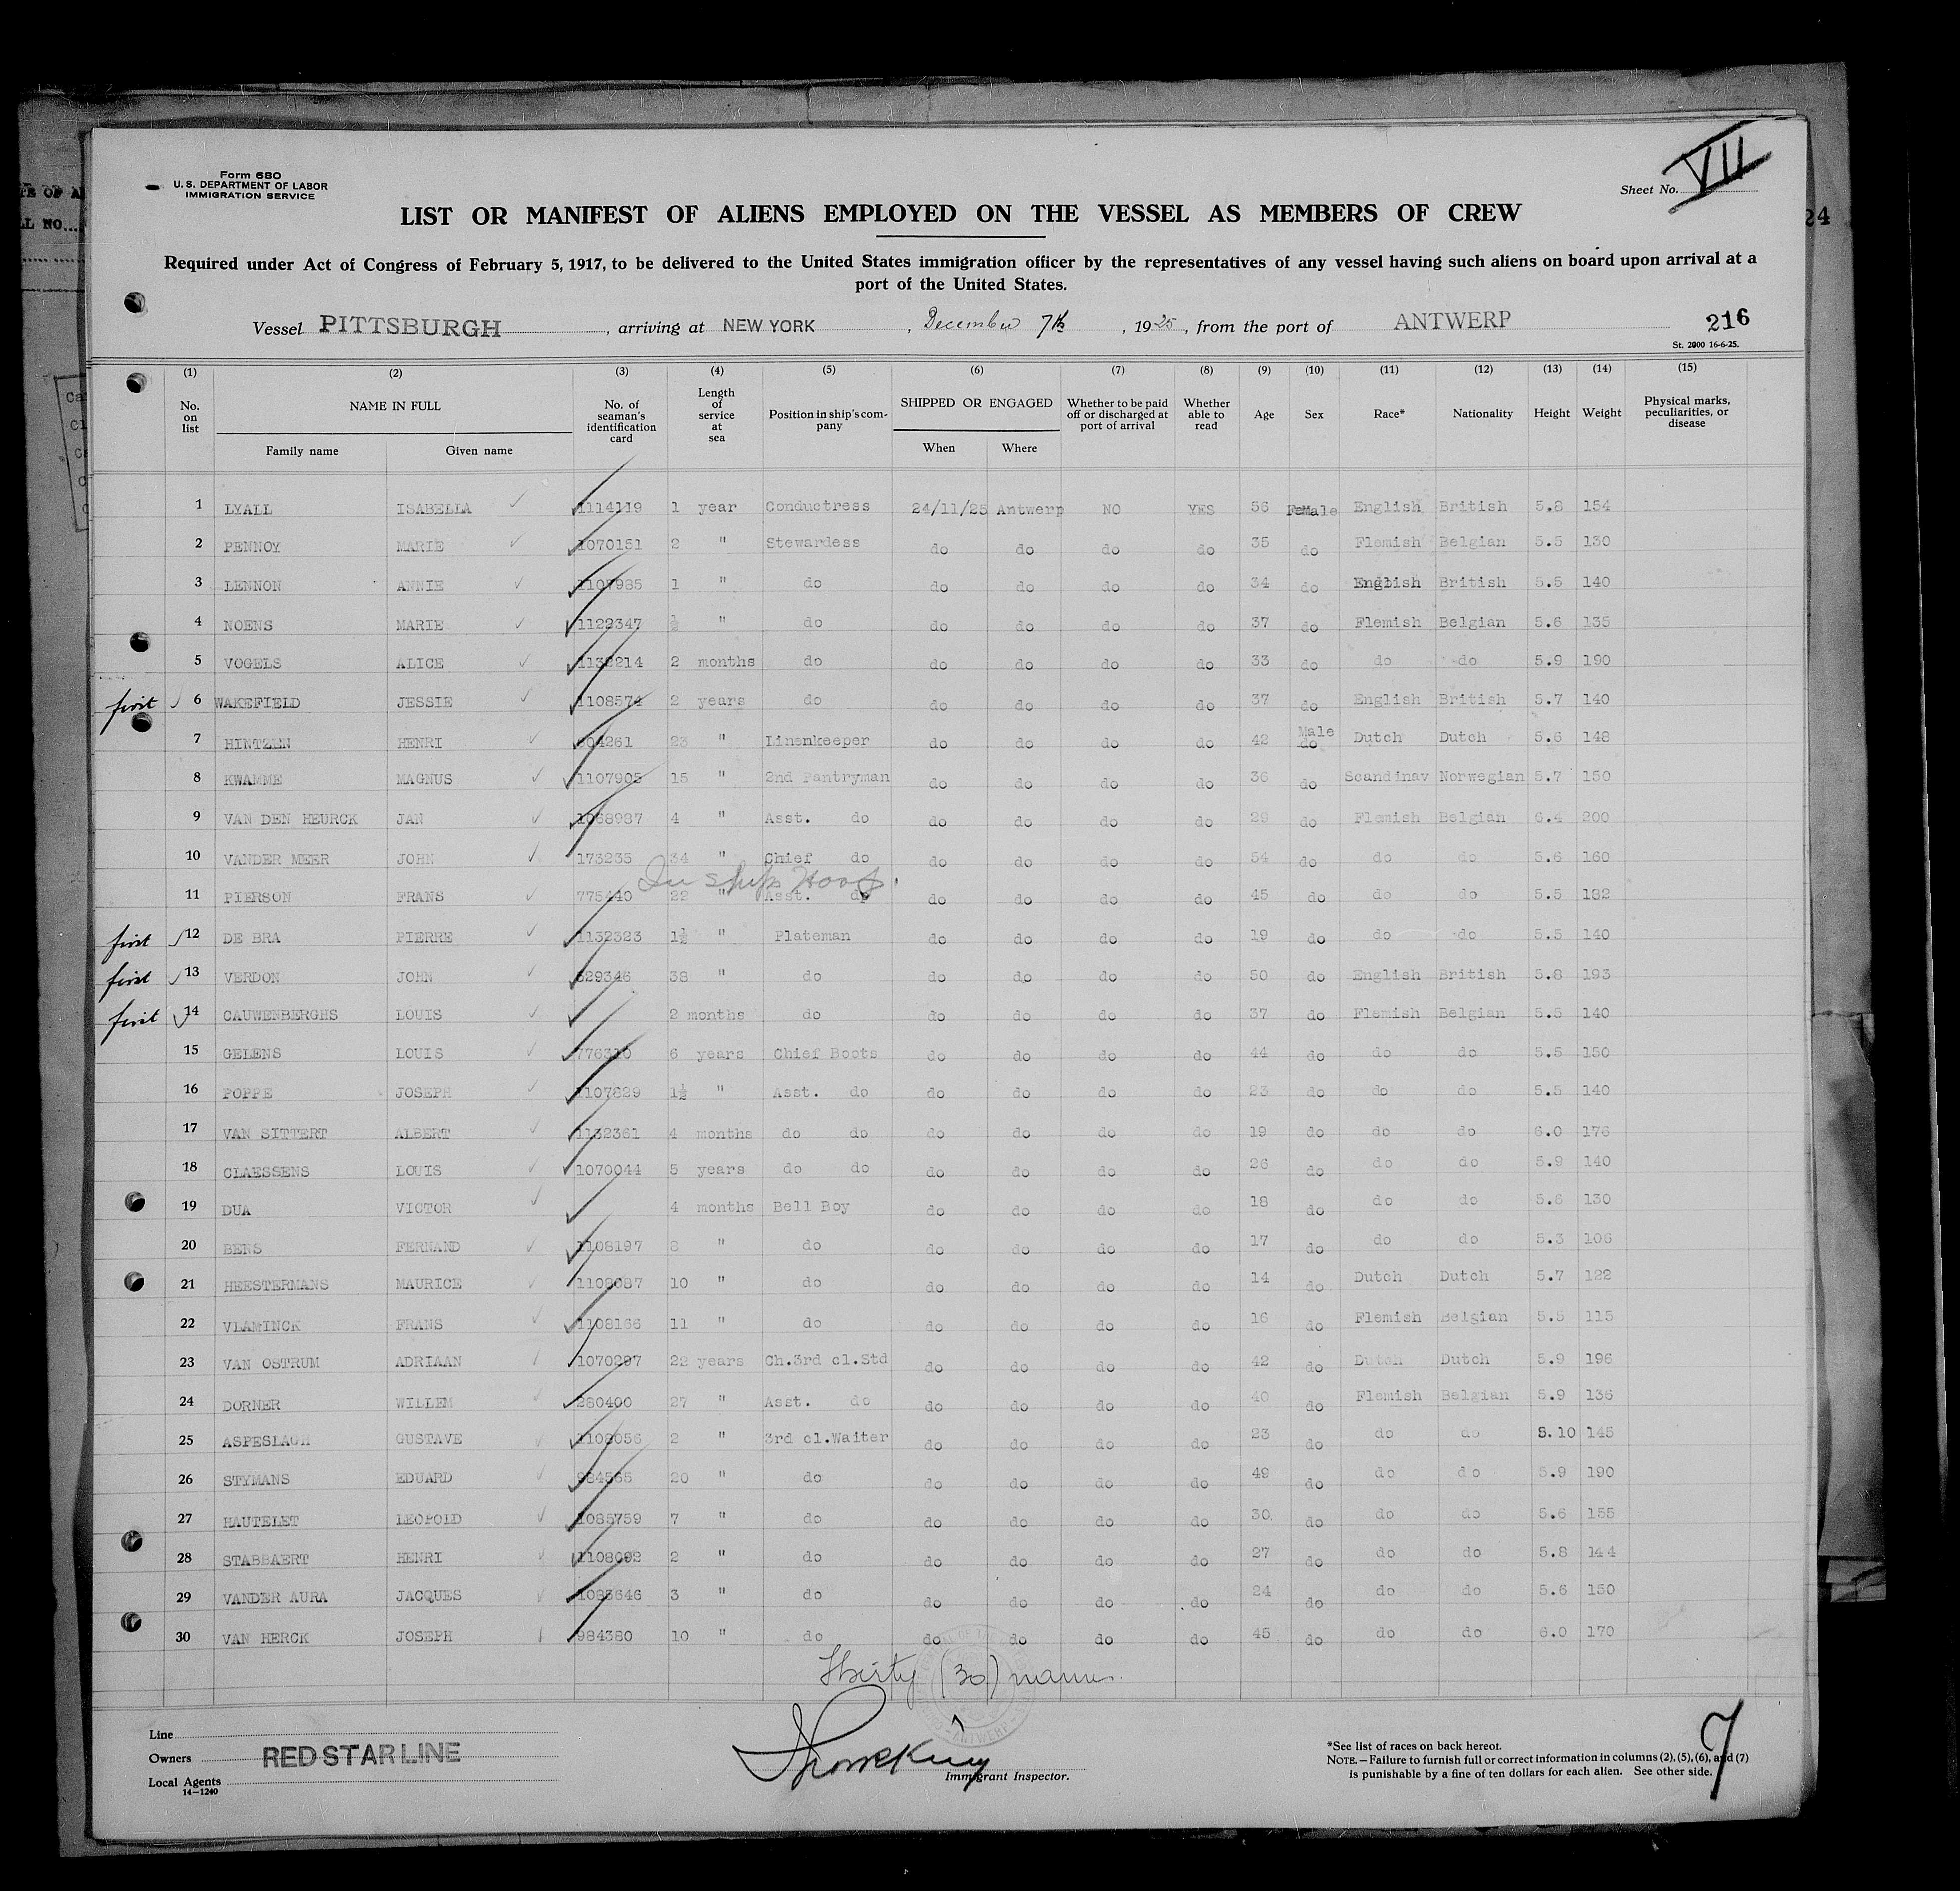 Form 680
U. S. DEPARTMENT OF LABOR
IMMIGRATION SERVICE
Sheet No. VII
LIST OR MANIFEST OF ALIENS EMPLOYED ON THE VESSEL AS MEMBERS OF CREW
Required under Act of Congress of February 5, 1917, to be delivered to the United States immigration officer by the representatives of any vessel having such aliens on board upon arrival at a
port of the United States.
Vessel PITTSBURGH, arriving at NEW YORK, December 7th, 1925, from the port of ANTWERP 216
St. 2000 16-6-25.
(1) (2) (3) (4) (5) (6) (7) (8) (9) (10) (11) (12) (13) (14) (15)
No. on list NAME IN FULL Family name Given name No. of seaman's identification card Length of service at sea Position in ship's company SHIPPED OR ENGAGED When Where Whether to be paid off or discharged at port of arrival Whether able to read Age Sex Race* Nationality Height Weight Physical marks, peculiarities, or disease
1 LYALL ISABELLA 1114119 1 year Conductress 24/11/25 Antwerp NO YES 56 FeMale English British 5.8 154
2 PENNOY MARIE 1070151 2 " Stewardess do do do do 35 do Flemish Belgian 5.5 130
3 LENNON ANNIE 1107985 1 " do do do do do 34 do English British 5.5 140
4 NOENS MARIE 1122347 ½ " do do do do do 37 do Flemish Belgian 5.6 135
5 VOGELS ALICE 1132214 2 months do do do do do 33 do do do 5.9 190
first 6 WAKEFIELD JESSIE 1108574 2 years do do do do do 37 do English British 5.7 140
7 HINTZEN HENRI 23 " Linenkeeper do do do do 42 Male do Dutch Dutch 5.6 148
8 KWAMME MAGNUS 1107905 15 " 2nd Pantryman do do do do 36 do Scandinav Norwegian 5.7 150
9 VAN DEN HEURCK JAN 1068987 4 " Asst. do do do do do 29 do Flemish Belgian 6.4 200
10 VANDER MEER JOHN 173235 34 " Chief do do do do do 54 do do do 5.6 160
In ship's Hosp.
11 PIERSON FRANS 775440 22 " Asst. do do do do do 45 do do do 5.5 182
first 12 DE BRA PIERRE 1132323 1½ " Plateman do do do do 19 do do do 5.5 140
first 13 VERDON JOHN 629346 38 " do do do do do 50 do English British 5.8 193
first 14 CAUWENBERGHS LOUIS 2 months do do do do do 37 do Flemish Belgian 5.5 140
15 GELENS LOUIS 776310 6 years Chief Boots do do do do 44 do do do 5.5 150
16 POPPE JOSEPH 1107829 1½ " Asst. do do do do do 23 do do do 5.5 140
17 VAN SITTERT ALBERT 1132361 4 months do do do do do do 19 do do do 6.0 176
18 CLAESSENS LOUIS 1070044 5 years do do do do do do 26 do do do 5.9 140
19 DUA VICTOR 4 months Bell Boy do do do do 18 do do do 5.6 130
20 BENS FERNAND 1108197 8 " do do do do do 17 do do do 5.3 106
21 HEESTERMANS MAURICE 1108087 10 " do do do do do 14 do Dutch Dutch 5.7 122
22 VLAMINCK FRANS 1108166 11 " do do do do do 16 do Flemish Belgian 5.5 115
23 VAN OSTRUM ADRIAAN 1070297 22 years Ch.3rd cl.Std do do do do 42 do Dutch Dutch 5.9 196
24 DORNER WILLEM 280400 27 " Asst. do do do do do 40 do Flemish Belgian 5.9 136
25 ASPESLAGH GUSTAVE 1108056 2 " 3rd cl.Waiter do do do do 23 do do do 5.10 145
26 STYMANS EDUARD 984565 20 " do do do do do 49 do do do 5.9 190
27 HAUTELET LEOPOLD 1085759 7 " do do do do do 30 do do do 5.6 155
28 STABBAERT HENRI 1108092 2 " do do do do do 27 do do do 5.8 144
29 VANDER AURA JACQUES 1083646 3 " do do do do do 24 do do do 5.6 150
30 VAN HERCK JOSEPH 984380 10 " do do do do do 45 do do do 6.0 170
Thirty (30) names
Line
Owners RED STAR LINE
Local Agents
14—1240
Immigrant Inspector.
*See list of races on back hereof.
NOTE.—Failure to furnish full or correct information in columns (2), (5), (6), and (7)
is punishable by a fine of ten dollars for each alien. See other side.
7